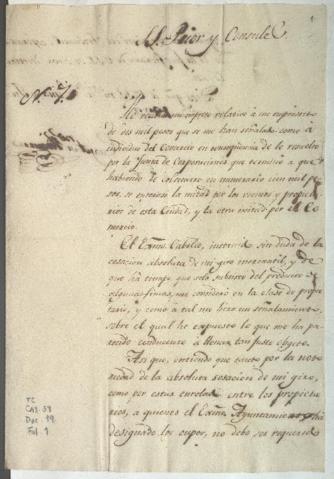 S.S. Prior y Consules
He recibido un impreso relativo a un emprestito
de dos mil pesos que se me han señalado como a
individuo del Comercio en consequencia de lo resuelto
por la Junta de Corporaciones que
habiendo de colectarse en numerario cien mil pe-
sos, se exhiban la mitad por los vecinos y propie-
tarios de esta Ciudad, y la otra mitad por el Co-
mercio.
El Exmo. Cabildo, instruido sin duda de la
cesacion absoluta de mi giro mercantil, y de
que ha tiempo que solo subsisto del producto de
algunas fincas, me consideró en la clase de propie-
tario, y como a tal me hizo un señalamiento,
sobre el qual he expuesto lo que me ha pa-
recido conducente a llenar tan justo objeto.
Asi que, entiendo que tanto por la noto-
riedad de la absoluta cesacion de mi giro,
como por estar enrolado entre los propieta-
rios, a quienes el Exmo. Ayuntamiento ha
designado los cupos, no debo ser requerido
TC
CA2.58
Doc. 19
Fol. 1